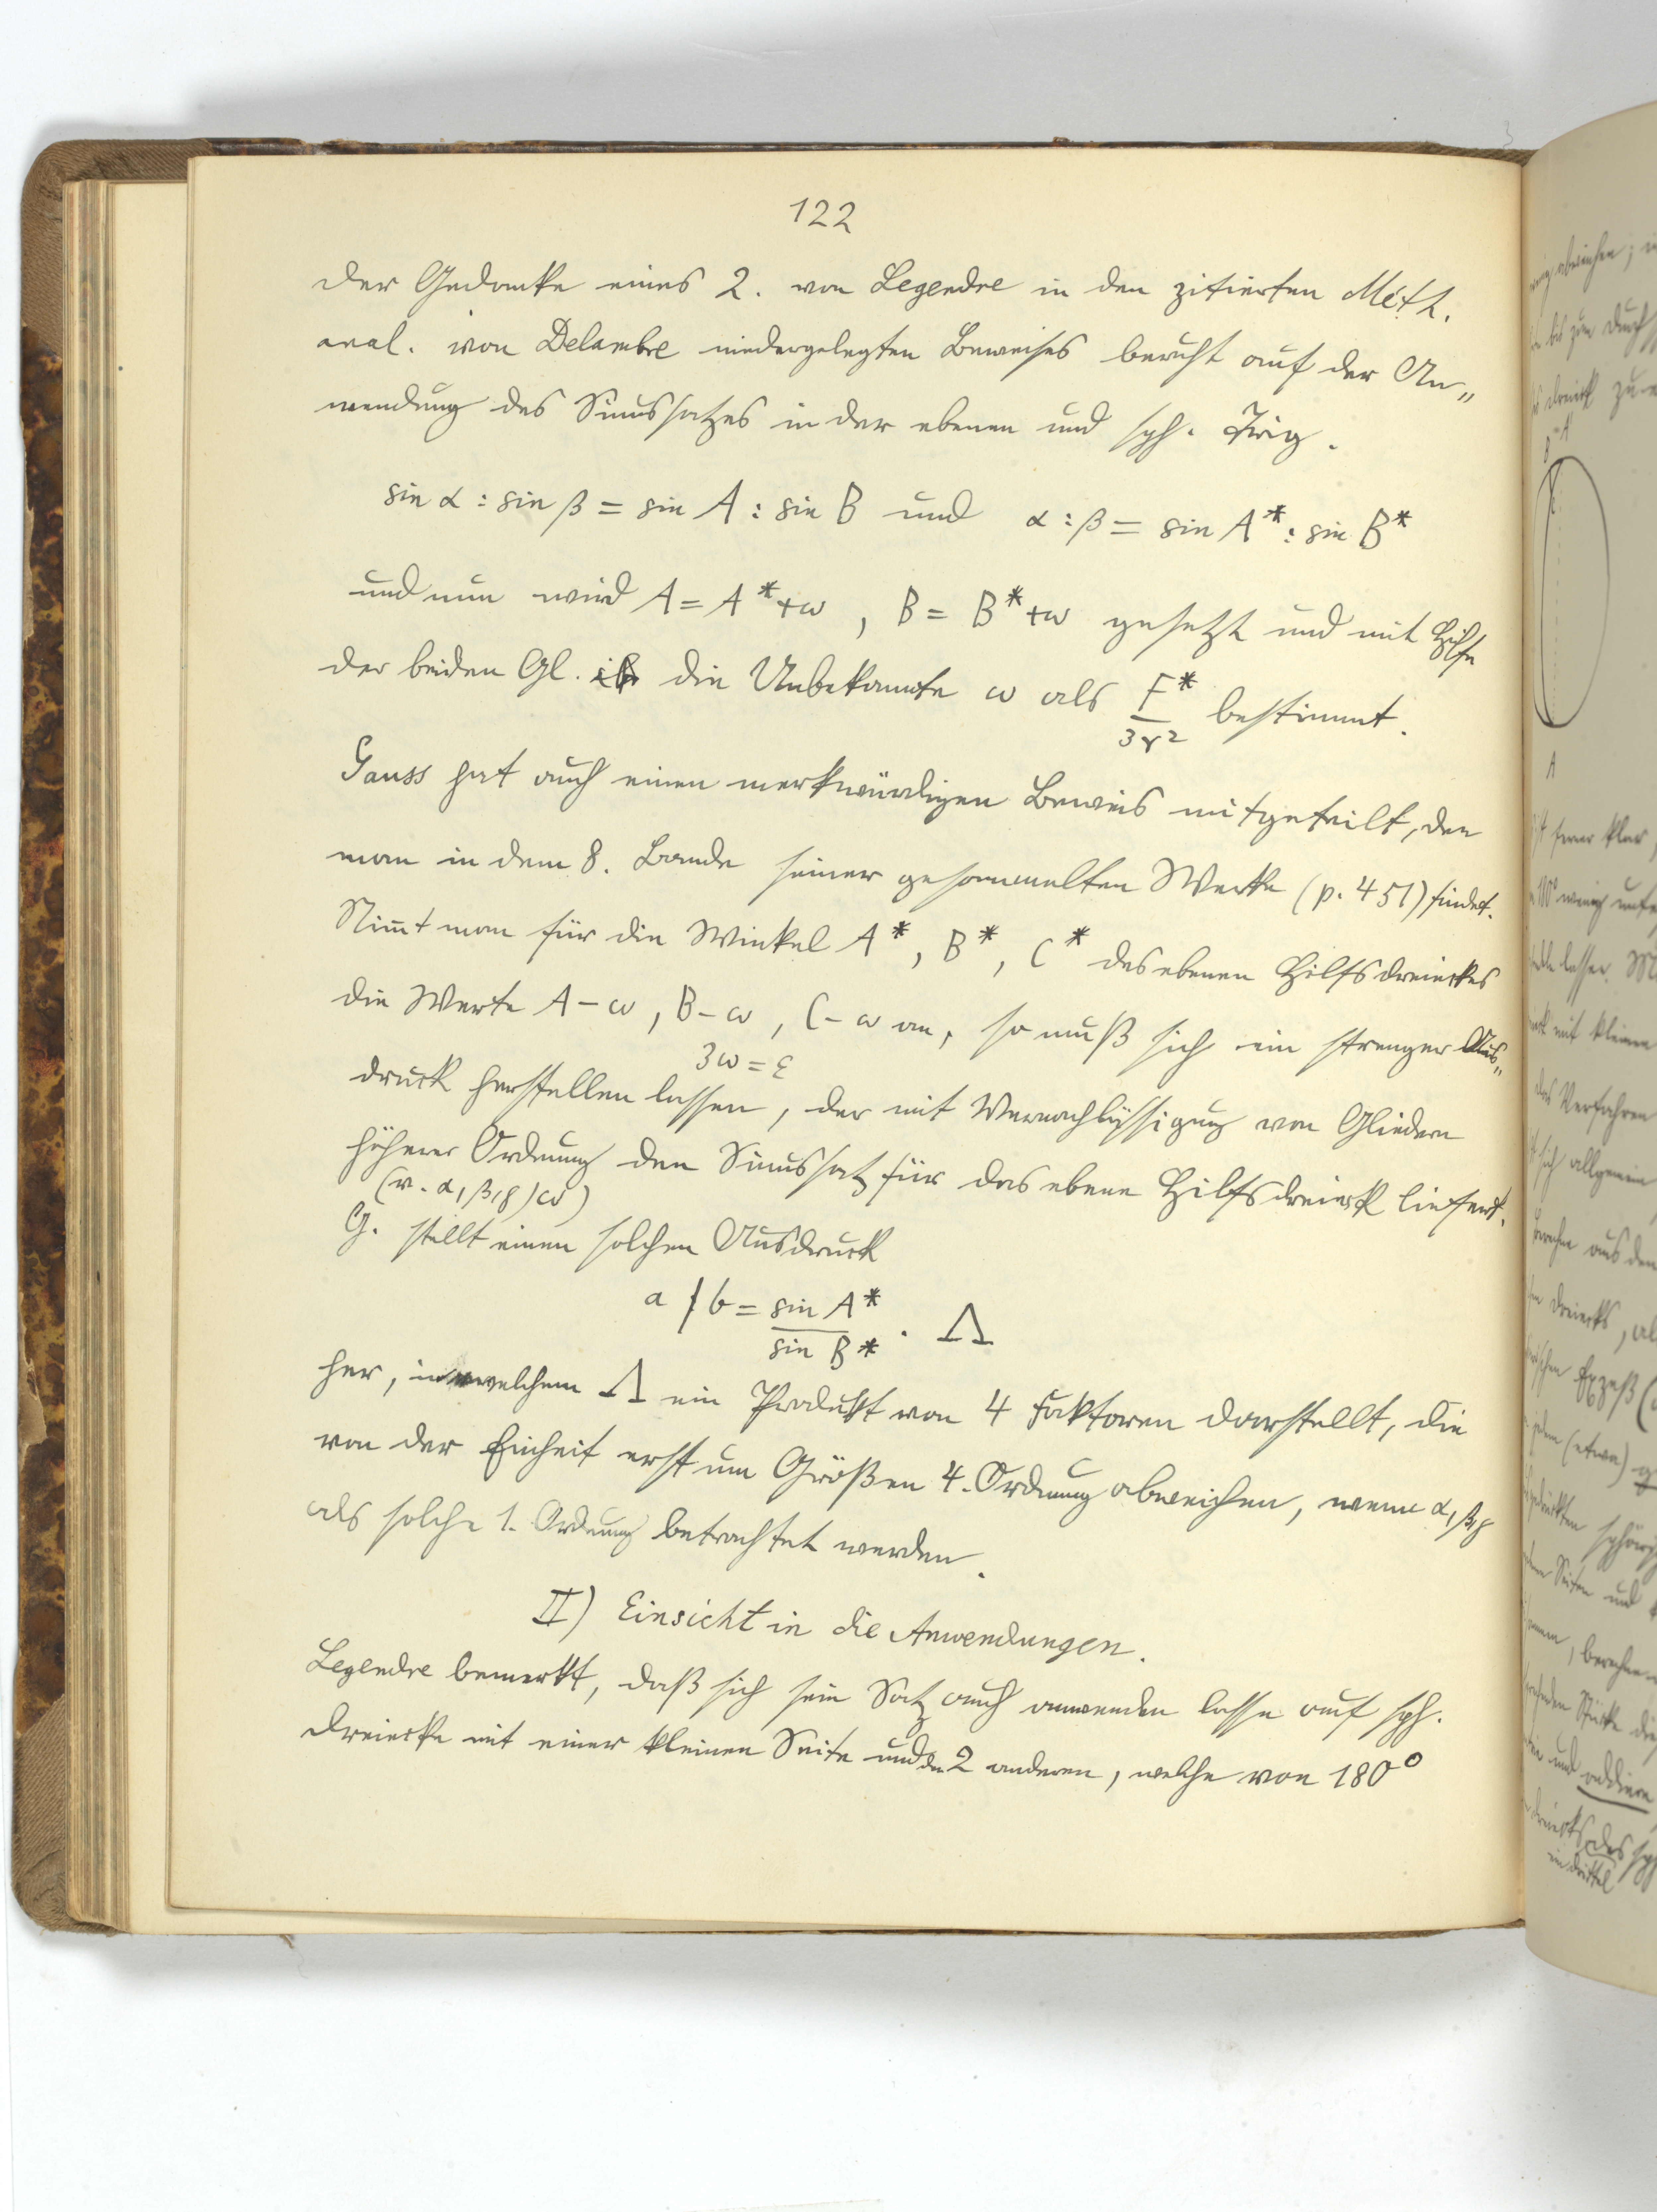 122
Der Gedanke eines 2. von Legendre in den zitierten Méth.
anal. von Delambre niedergelegten Beweises beruht auf der An„
wendung des Sinussatzes in der ebenen und sph. Trig.
sin α : sin β = sin A : sin B und α : β = sin A* : sin B*
und nun wird A = A*+ω, B = B*+ω gesetzt und mit Hilfe
der beiden Gl. die Unbekannte ω als F*/3r² bestimmt.
Gauss hat auch einen merkwürdigen Beweis mitgeteilt, den
man in dem 8. Bande seiner gesammelten Werke (p. 451) findet.
Nim̄t man für die Winkel A*, B*, C* des ebenen Hilfsdreieckes
die Werte A-ω, B-ω, C-ω an, so muß sich ein strenger Aus„
3ω = ε
druck herstellen lassen, der mit Vernachlässigung von Gliedern
höherer Ordnung den Sinussatz für das ebene Hilfsdreieck liefert.
(v. α, β, γ, ω)
G. stellt einen solchen Ausdruck
a / b = sin A* / sin B* . Λ
her, in welchem Λ ein Produkt von 4 Faktoren darstellt, die
von der Einheit erst um Größen 4. Ordnung abweichen, wenn α, β, γ
als solche 1. Ordnung betrachtet werden.
II) Einsicht in die Anwendungen.
Legendre bemerkt, daß sich sein Satz auch anwenden lasse auf sph.
Dreiecke mit einer kleinen Seite und den 2 anderen, welche von 180°